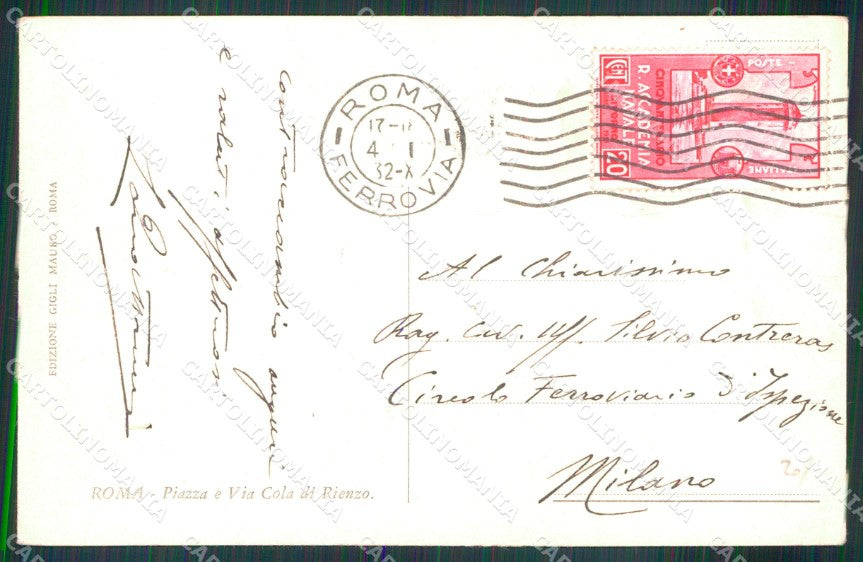 contraccambio auguri
e saluti affettuosi
EDIZIONE GIGLI MAURO ROMA
ROMA - Piazza e Via Cola di Rienzo.
ROMA
17-18
4 I
32-X
FERROVIA
POSTE
ITALIANE
CINQUANTENARIO
R. ACCADEMIA
NAVALE
CENT
20
Al Chiarissimo
Rag. Cav. Uff. Silvio Contreras
Circolo Ferroviario d'Ispezione
Milano
20/
CARTOLINOMANIA